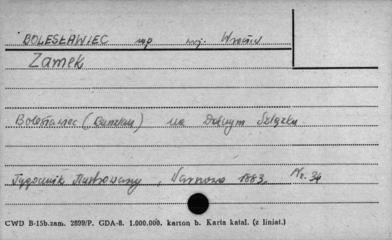 BOLESŁAWIEC woj. Wrocław
Zamek
Bolesławiec (Bunzlau) na Dolnym Szlązku
Tygodnik Ilustrowany, Warszawa 1883, Nr. 34
CWD B-15b.zam. 2899/P. GDA-8. 1.000.000. karton b. Karta katal. (z liniat.)